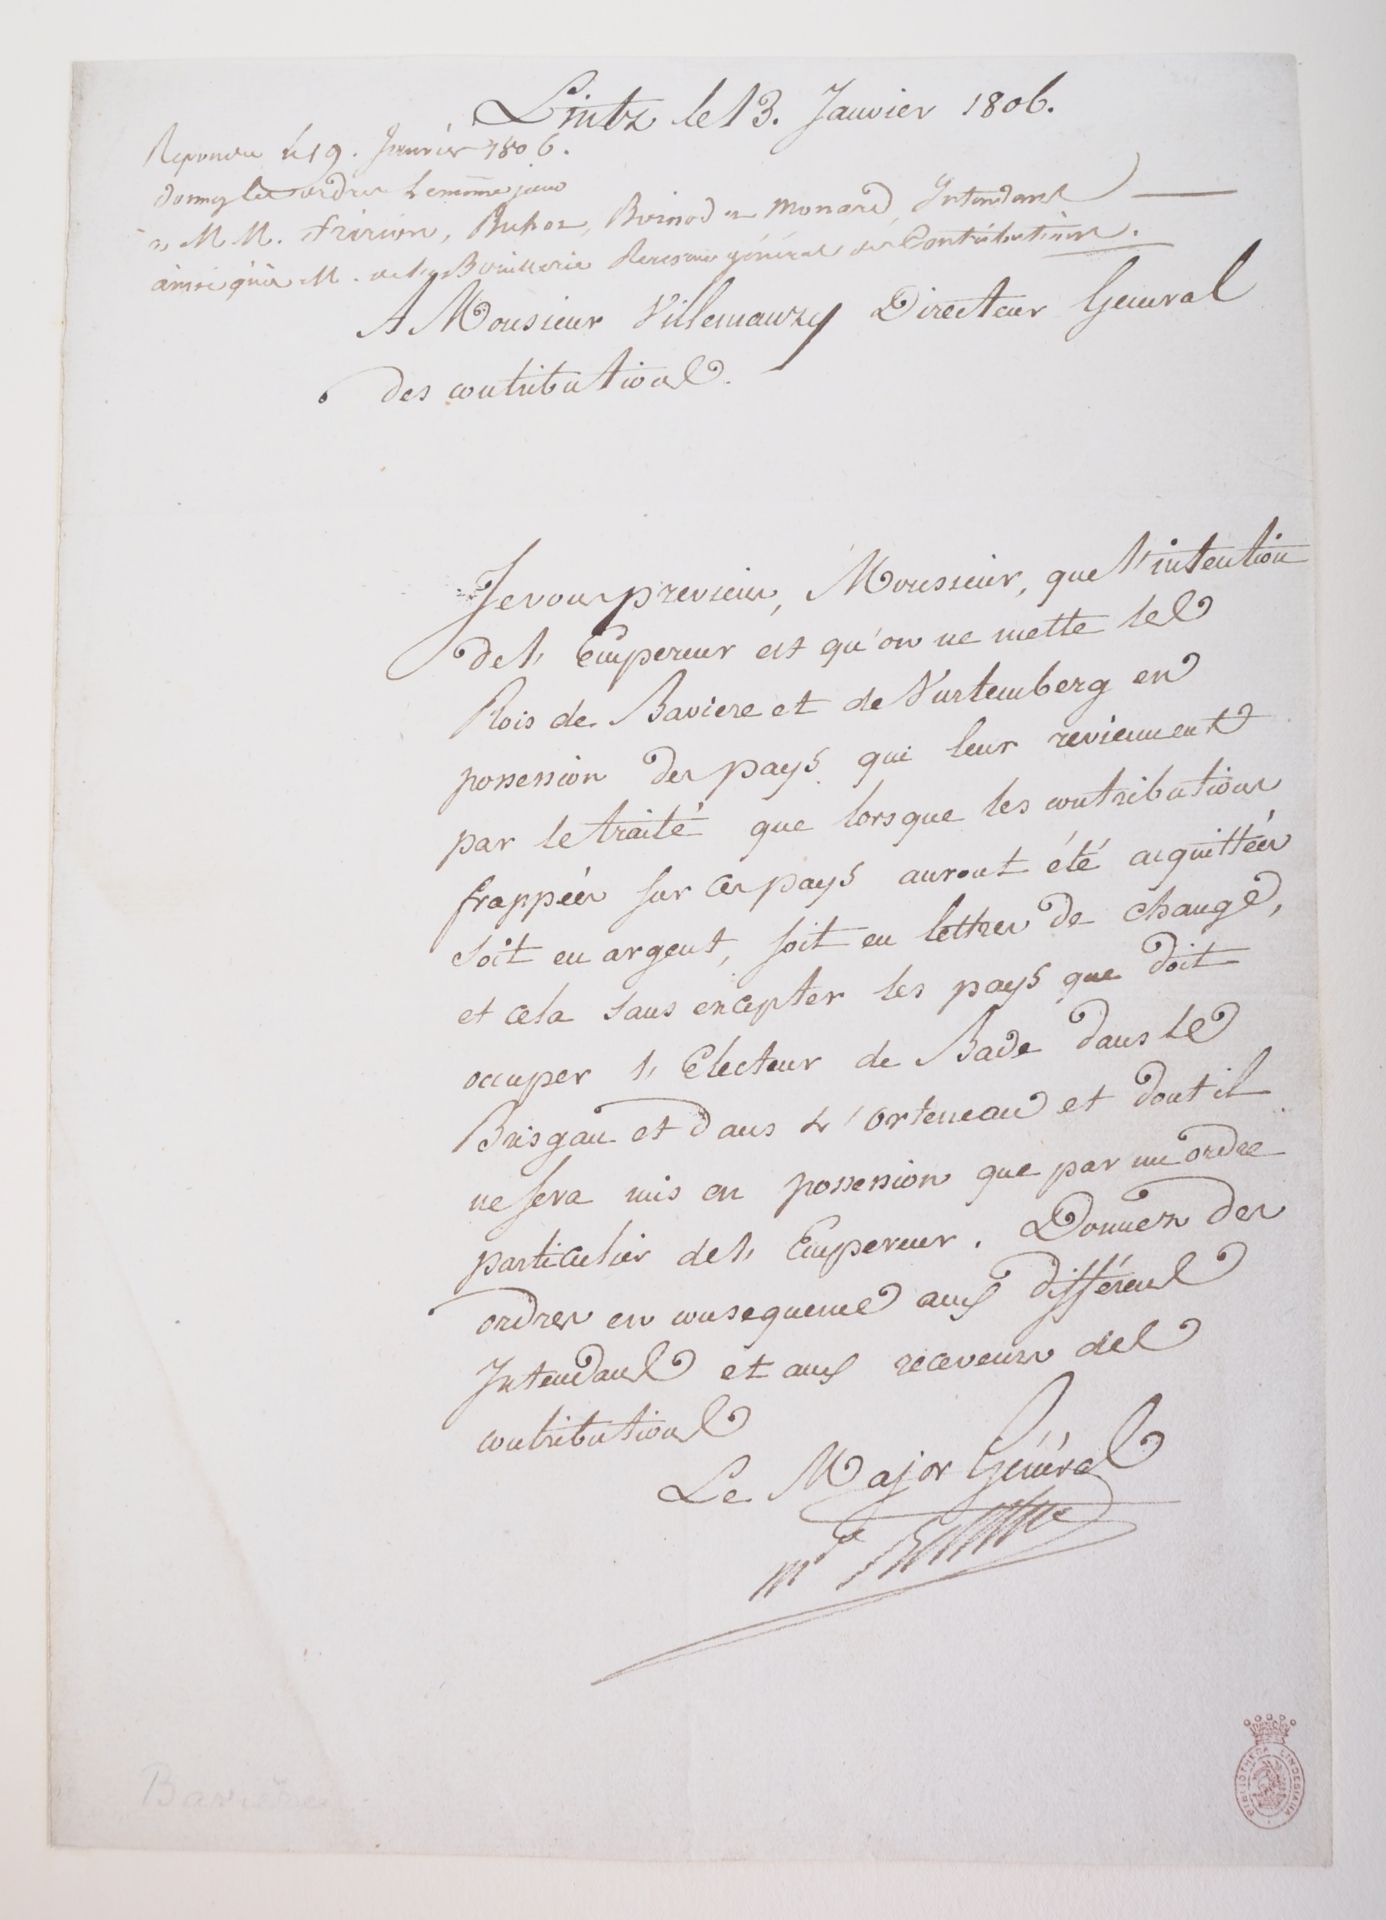 Lintz le 13. Janvier 1806.
Repondu le 19. Janvier 1806.
donné les ordres le même jour
à MM. Fririon, Buhot, Boinod et Monard, Intendans
ainsi qu'à M. de la Bouillerie Receveur général des Contributions.
A Monsieur Villemanzy Directeur General
des contributions.
Je vous previens, Monsieur, que l'intention
de l'Empereur est qu'on ne mette les
Rois de Baviere et de Vurtemberg en
possession des pays qui leur reviennent
par le traité que lorsque les contributions
frappées sur ces pays auront été acquittées
soit en argent, soit en lettres de change,
et cela sans excepter les pays que doit
occuper l'Electeur de Bade dans le
Brisgau et dans L'Orteneau et dont il
ne sera mis en possession que par un ordre
particulier de l'Empereur. Donnez des
ordres en consequence aux différens
Intendans et aux receveurs des
contributions
Le Major Général
Mal Berthier
Baviere
BIBLIOTHECA LINDESIANA